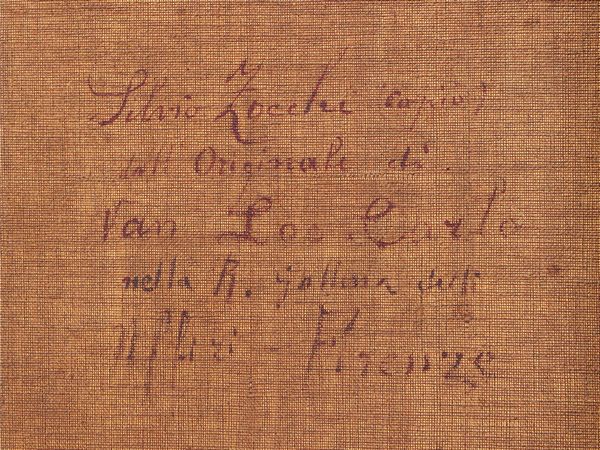 Silvio Zocchi (copiò)
dall'Originale di
Van Loo Carlo
nella R. galleria degli
Uffizi - Firenze